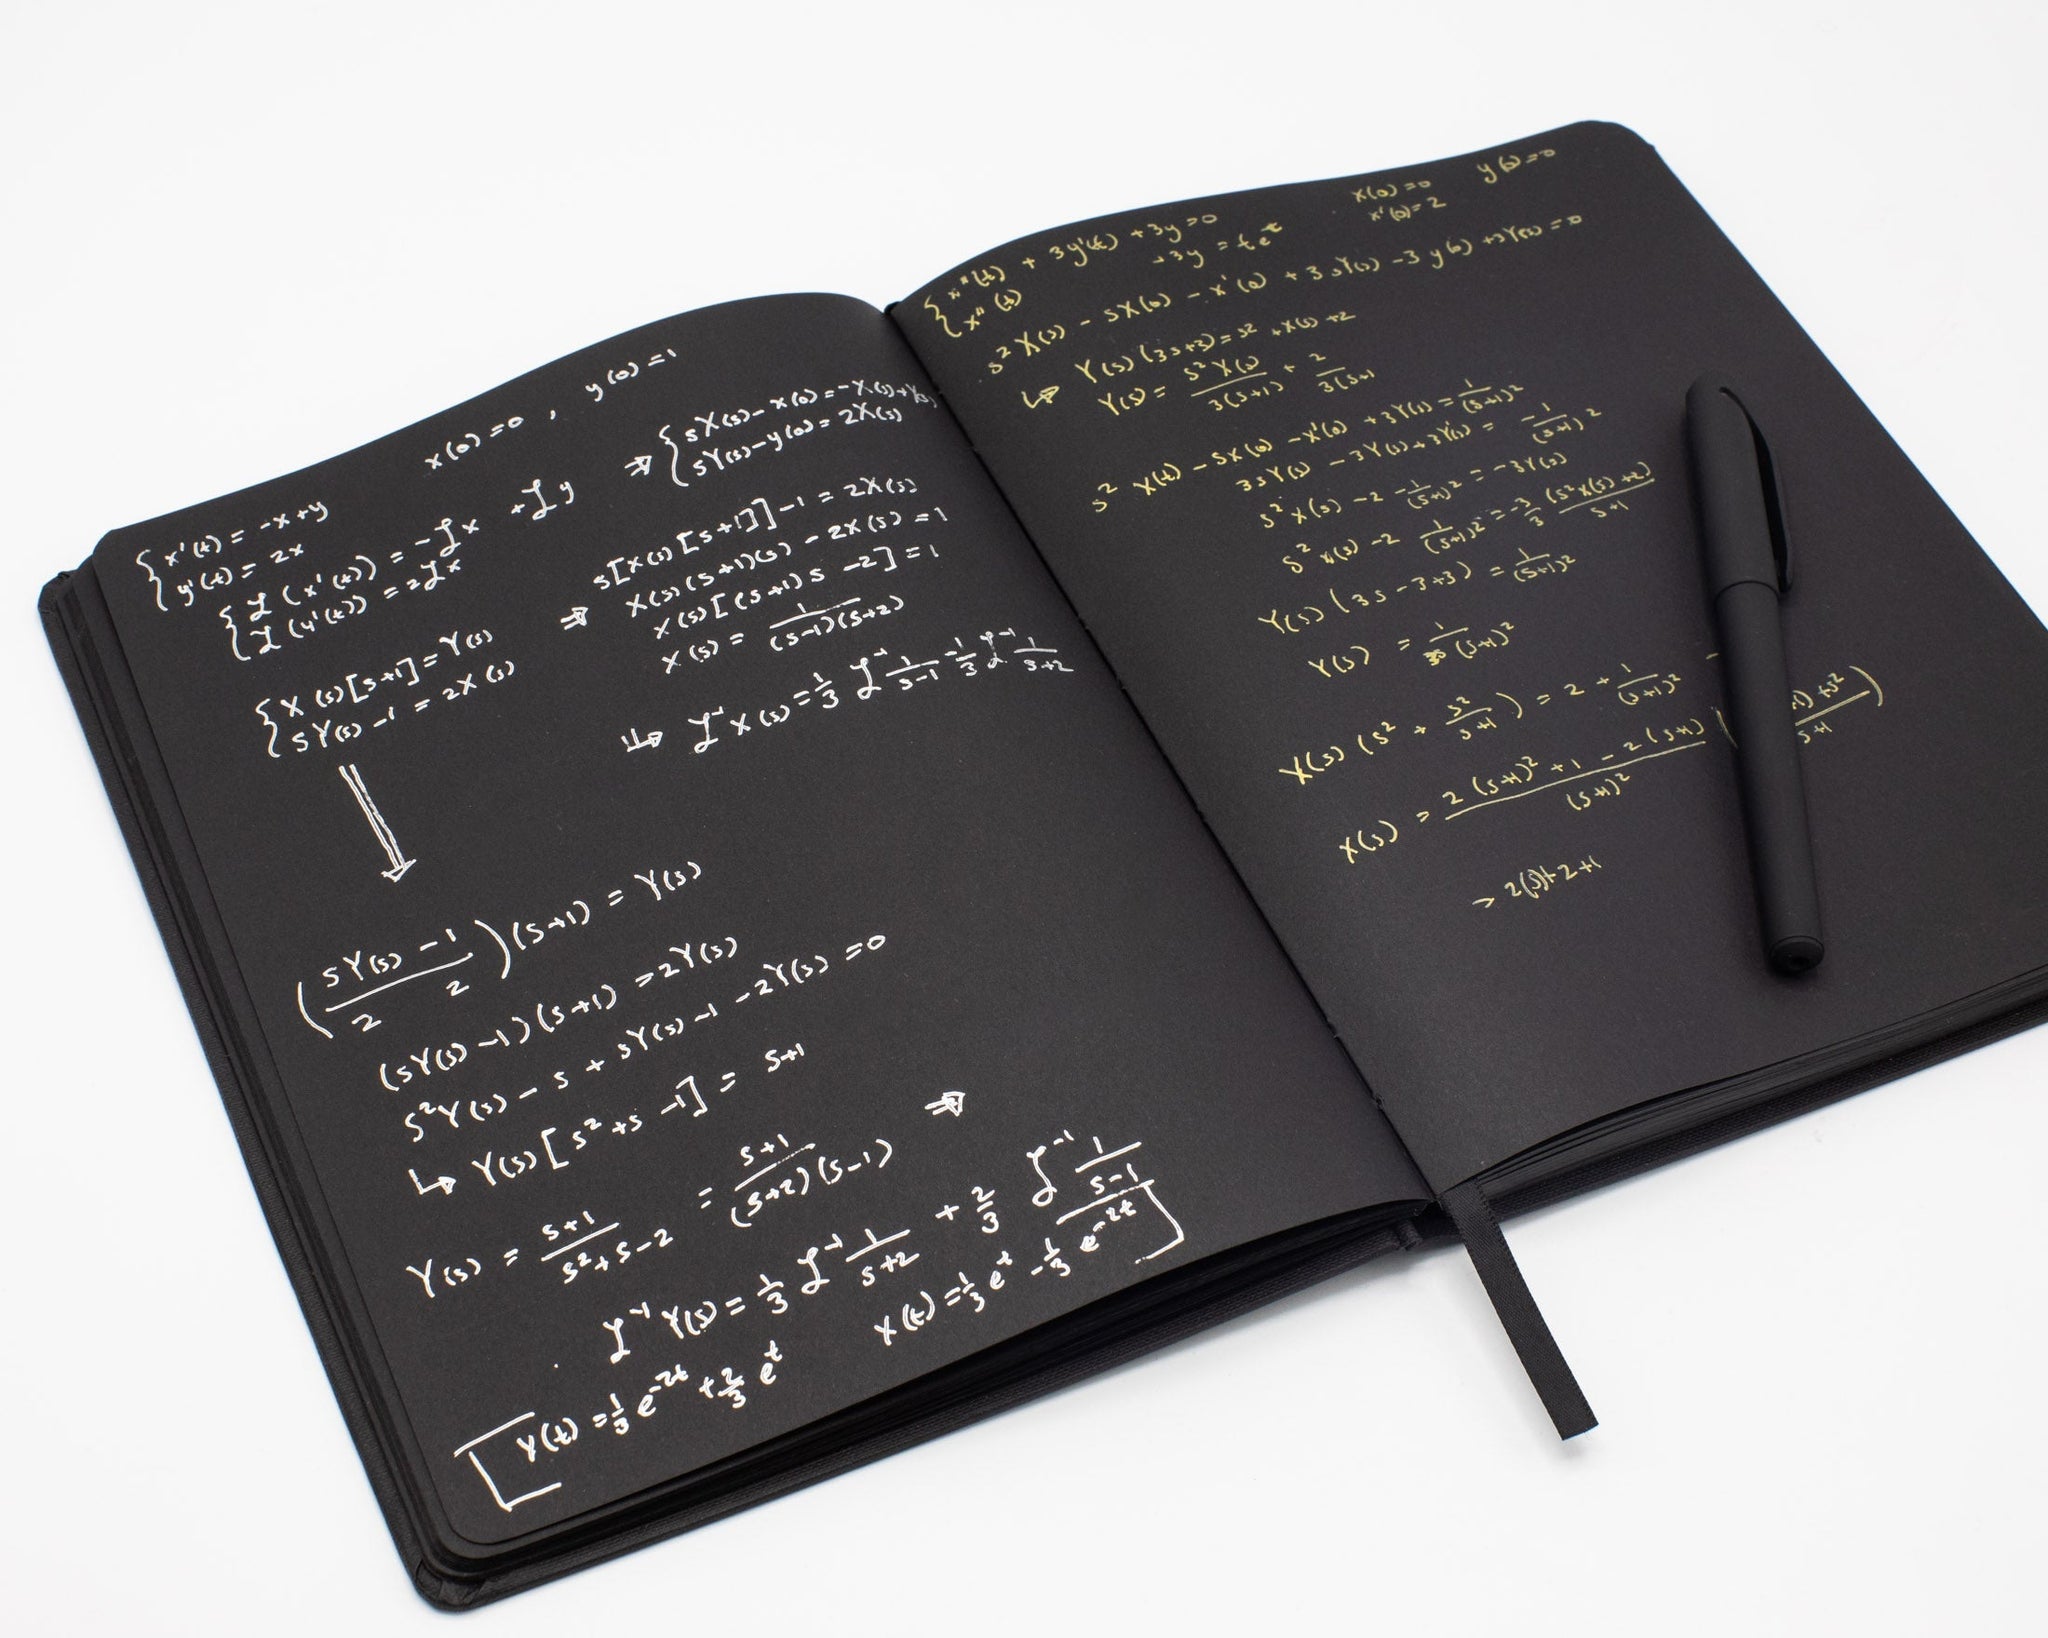 x(0)=0 , y(0)=1
{ x'(t) = -x+y
y'(t) = 2x
{ ℒ(x'(t)) = -ℒx +ℒy
ℒ(y'(t)) = 2ℒx
⇒ { sX(s)-x(0)=-X(s)+Y(s)
sY(s)-y(0)=2X(s)
{ X(s)[s+1]=Y(s)
sY(s)-1 = 2X(s)
⇒ s[X(s)[s+1]]-1=2X(s)
X(s)(s+1)(s)-2X(s)=1
X(s)[(s+1)s-2]=1
X(s) = 1/(s-1)(s+2)
↳ ℒ⁻¹X(s)=1/3 ℒ⁻¹ 1/s-1 -1/3 ℒ⁻¹ 1/s+2
(sY(s)-1 / 2 2)(s+1) = Y(s)
(sY(s)-1)(s+1)=2Y(s)
s²Y(s)-s+sY(s)-1-2Y(s)=0
↳ Y(s)[s²+s-1] = s+1
Y(s) = s+1/s²+s-2 = s+1/(s+2)(s-1) ⇒
ℒ⁻¹Y(s)=1/3 ℒ⁻¹ 1/s+2 + 2/3 ℒ⁻¹ 1/s-1
y(t)=1/3 e^-2t +2/3 e^t
x(t)=1/3 e^t -1/3 e^-2t
x(0)=0 y(0)=0
x'(0)=2
{ x''(t) + 3y'(t) +3y=0
x''(t) +3y = te^-t
s²X(s) - sX(0) - x'(0) +3sY(s)-3y(0)+3Y(s)=0
↳ Y(s)(3s+3)=s²+X(s)+2
Y(s) = s²X(s)/3(s+1) + 2/3(s+1
s² X(t) - sX(0) -x'(0) +3Y(s)=1/(s+1)²
3sY(s) -3Y(s)+3Y(s) = -1/(s+1)²
s²X(s)-2 -1/(s+1)² = -3Y(s)
s²X(s)-2 1/(s+1)² = -3/3 (s²X(s)+2)/s+1
Y(s)(3s-3+3) = 1/(s+1)²
Y(s) = 1/3s(s+1)²
X(s)(s² + s²/s+1) = 2+1/(s+1)² -
X(s) = 2(s+1)²+1-2(s+1)/(s+1)² ( +1)+s²/s+1 )
→ 2(s)+2+1